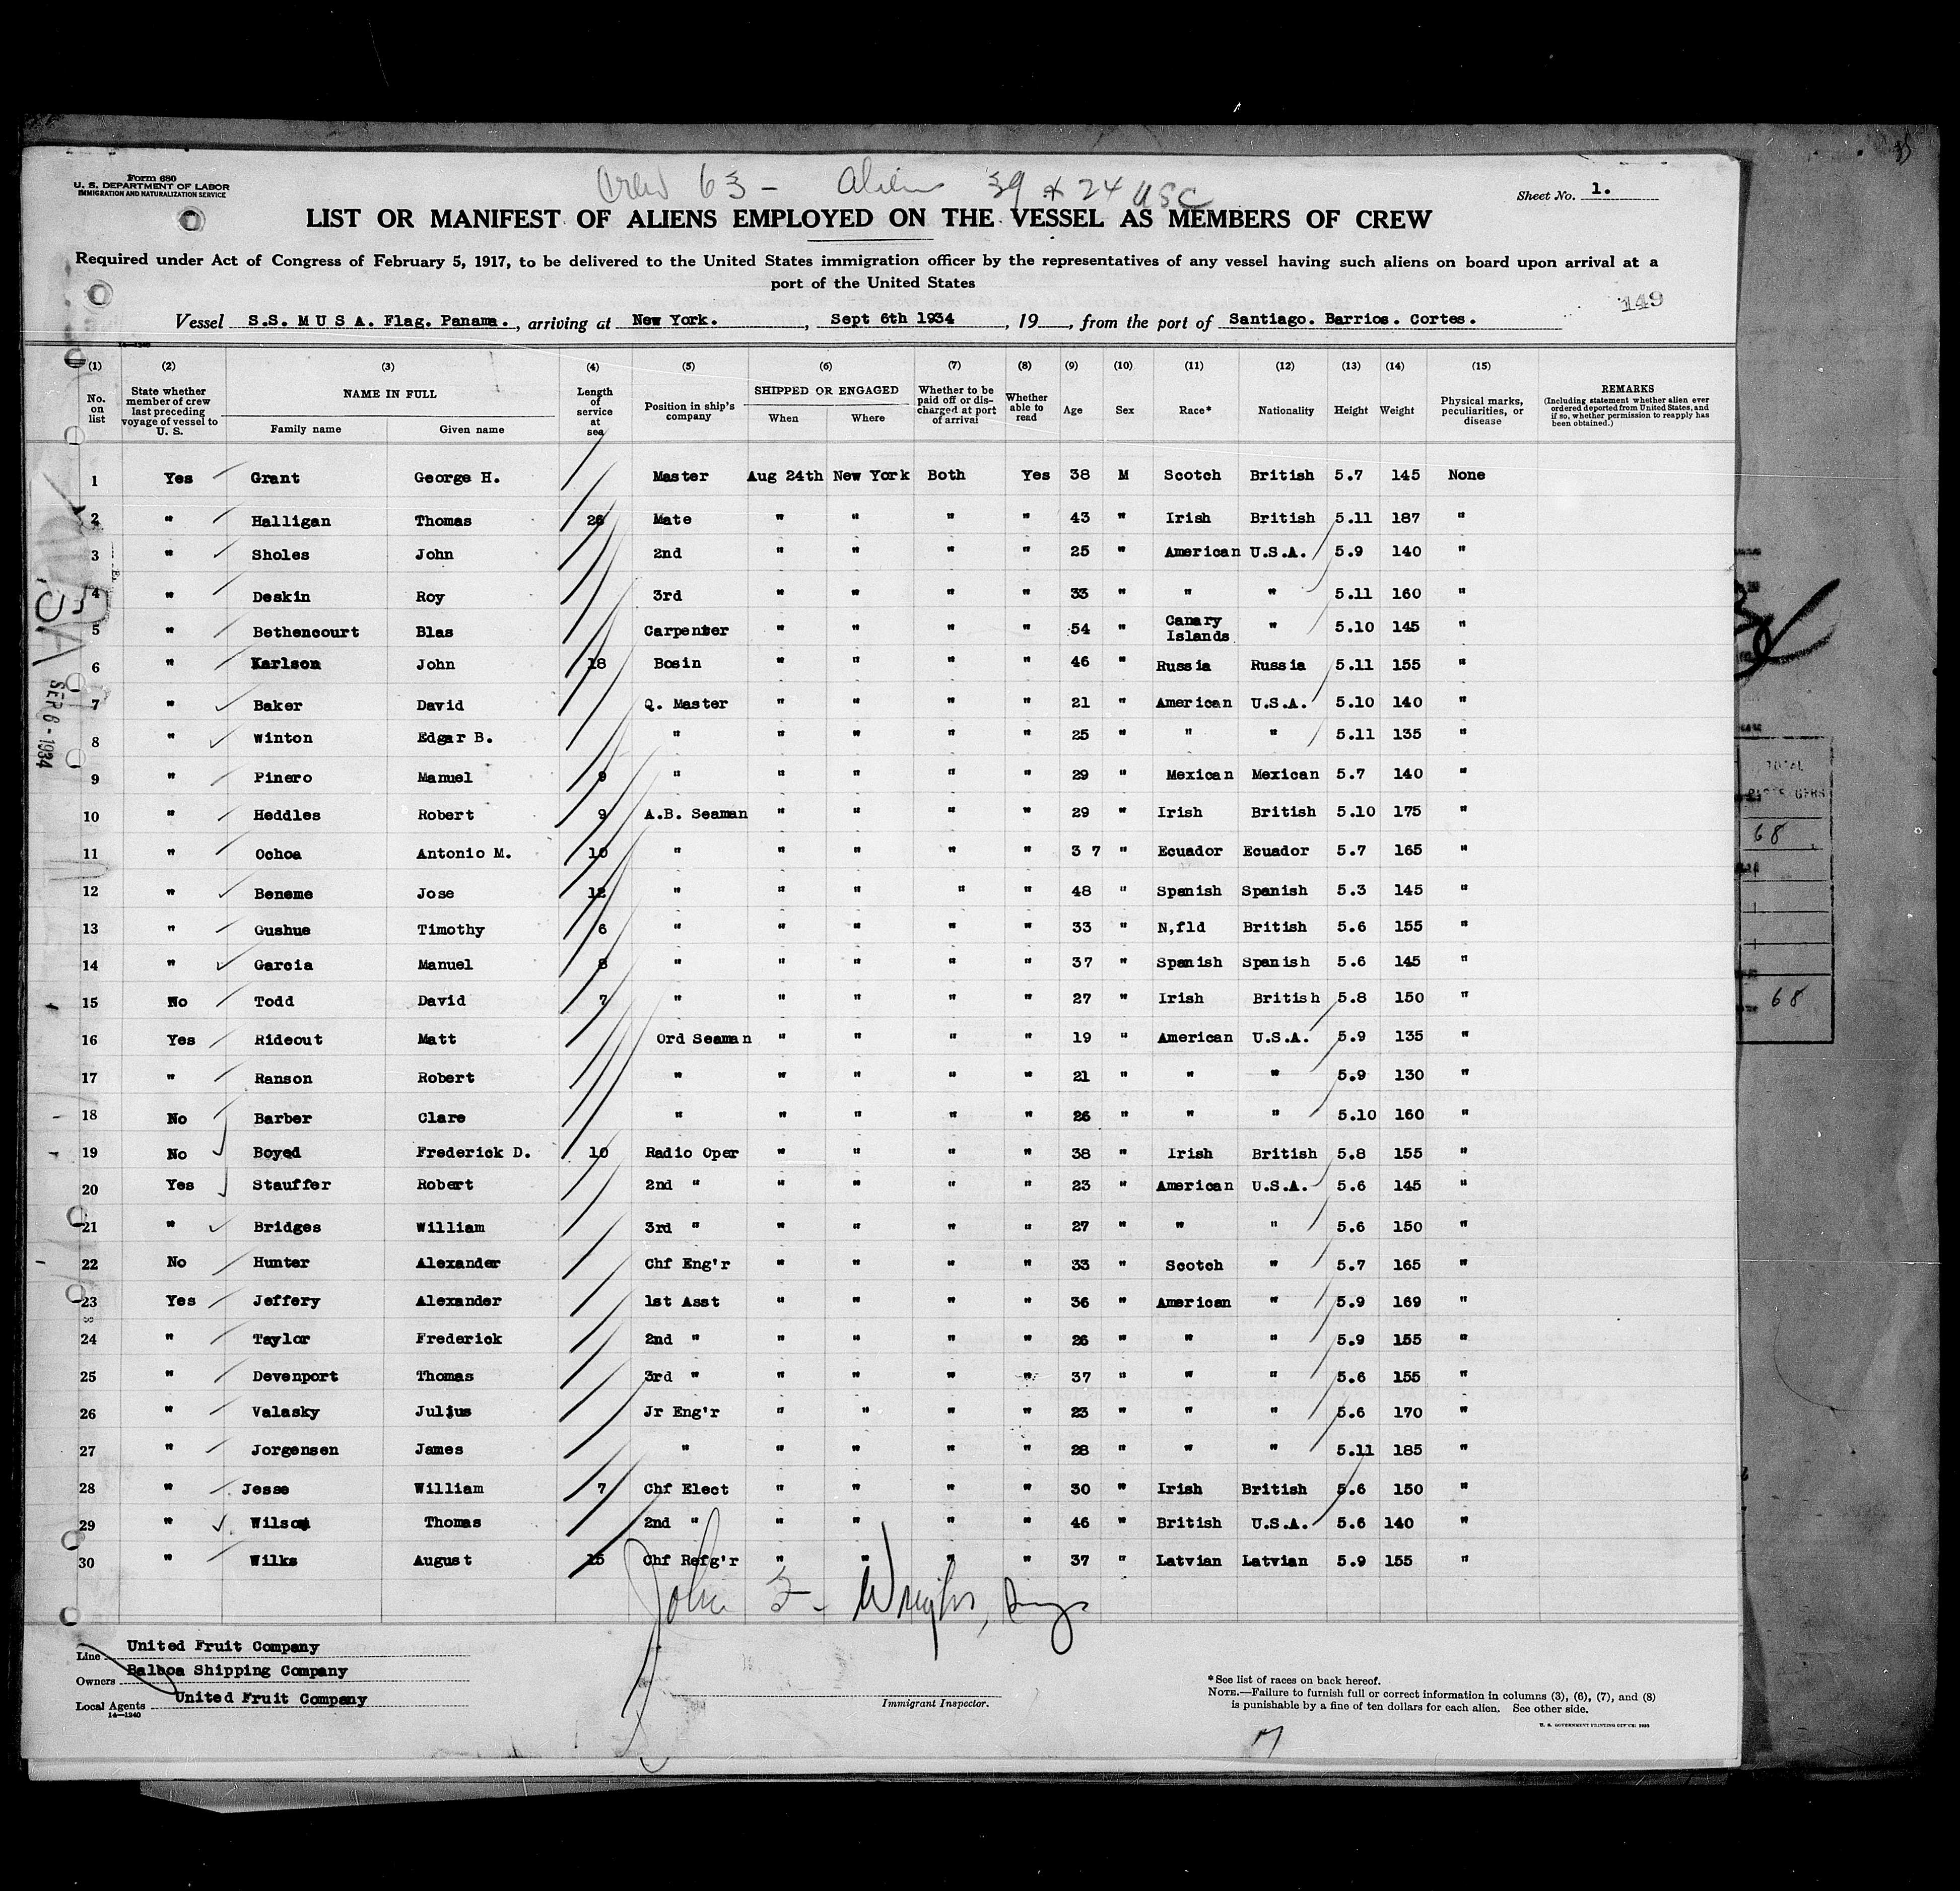 Form 680
U. S. DEPARTMENT OF LABOR
IMMIGRATION AND NATURALIZATION SERVICE
Crew 63 - Aliens 39 * 24 USC
Sheet No. 1.
LIST OR MANIFEST OF ALIENS EMPLOYED ON THE VESSEL AS MEMBERS OF CREW
Required under Act of Congress of February 5, 1917, to be delivered to the United States immigration officer by the representatives of any vessel having such aliens on board upon arrival at a
port of the United States
149
Vessel S.S. M U S A. Flag. Panama. , arriving at New York. , Sept 6th 1934 , 19 , from the port of Santiago. Barrios. Cortes.
14—1240
(1) (2) (3) (4) (5) (6) (7) (8) (9) (10) (11) (12) (13) (14) (15)
No. on list State whether member of crew last preceding voyage of vessel to U. S. NAME IN FULL Family name Given name Length of service at sea Position in ship's company SHIPPED OR ENGAGED When Where Whether to be paid off or discharged at port of arrival Whether able to read Age Sex Race* Nationality Height Weight Physical marks, peculiarities, or disease REMARKS (Including statement whether alien ever ordered deported from United States, and if so, whether permission to reapply has been obtained.)
1 Yes Grant George H. Master Aug 24th New York Both Yes 38 M Scotch British 5.7 145 None
2 " Halligan Thomas 26 Mate " " " " 43 " Irish British 5.11 187 "
3 " Sholes John 2nd " " " " 25 " American U.S.A. 5.9 140 "
4 " Deskin Roy 3rd " " " " 33 " " " 5.11 160 "
5 " Bethencourt Blas Carpenter " " " " 54 " Canary Islands " 5.10 145 "
6 " Karlson John 18 Bosin " " " " 46 " Russia Russia 5.11 155 "
7 " Baker David Q. Master " " " " 21 " American U.S.A. 5.10 140 "
8 " Winton Edgar B. " " " " " 25 " " " 5.11 135 "
9 " Pinero Manuel 9 " " " " " 29 " Mexican Mexican 5.7 140 "
10 " Heddles Robert 9 A.B. Seaman " " " " 29 " Irish British 5.10 175 "
11 " Ochoa Antonio M. 10 " " " " " 3 7 " Ecuador Ecuador 5.7 165 "
12 " Beneme Jose 12 " " " " " 48 " Spanish Spanish 5.3 145 "
13 " Gushue Timothy 6 " " " " " 33 " N,fld British 5.6 155 "
14 " Garcia Manuel 8 " " " " " 37 " Spanish Spanish 5.6 145 "
15 No Todd David 7 " " " " " 27 " Irish British 5.8 150 "
16 Yes Rideout Matt Ord Seaman " " " " 19 " American U.S.A. 5.9 135 "
17 " Ranson Robert " " " " " 21 " " " 5.9 130 "
18 No Barber Clare " " " " " 26 " " " 5.10 160 "
19 No Boyed Frederick D. 10 Radio Oper " " " " 38 " Irish British 5.8 155 "
20 Yes Stauffer Robert 2nd " " " " " 23 " American U.S.A. 5.6 145 "
21 " Bridges William 3rd " " " " " 27 " " " 5.6 150 "
22 No Hunter Alexander Chf Eng'r " " " " 33 " Scotch " 5.7 165 "
23 Yes Jeffery Alexander 1st Asst " " " " 36 " American " 5.9 169 "
24 " Taylor Frederick 2nd " " " " " 26 " " " 5.9 155 "
25 " Devenport Thomas 3rd " " " " " 37 " " " 5.6 155 "
26 " Valasky Julius Jr Eng'r " " " " 23 " " " 5.6 170 "
27 " Jorgensen James " " " " " 28 " " " 5.11 185 "
28 " Jesse William 7 Chf Elect " " " " 30 " Irish British 5.6 150 "
29 " Wilson Thomas 2nd " " " " " 46 " British U.S.A. 5.6 140 "
30 " Wilks August 15 Chf Refg'r " " " " 37 " Latvian Latvian 5.9 155 "
SEP 6 - 1934
TOTAL
68
68
John
Line United Fruit Company
Owners Balboa Shipping Company
Local Agents United Fruit Company
14—1240
Immigrant Inspector.
*See list of races on back hereof.
NOTE.—Failure to furnish full or correct information in columns (3), (6), (7), and (8)
is punishable by a fine of ten dollars for each alien. See other side.
U. S. GOVERNMENT PRINTING OFFICE: 1932